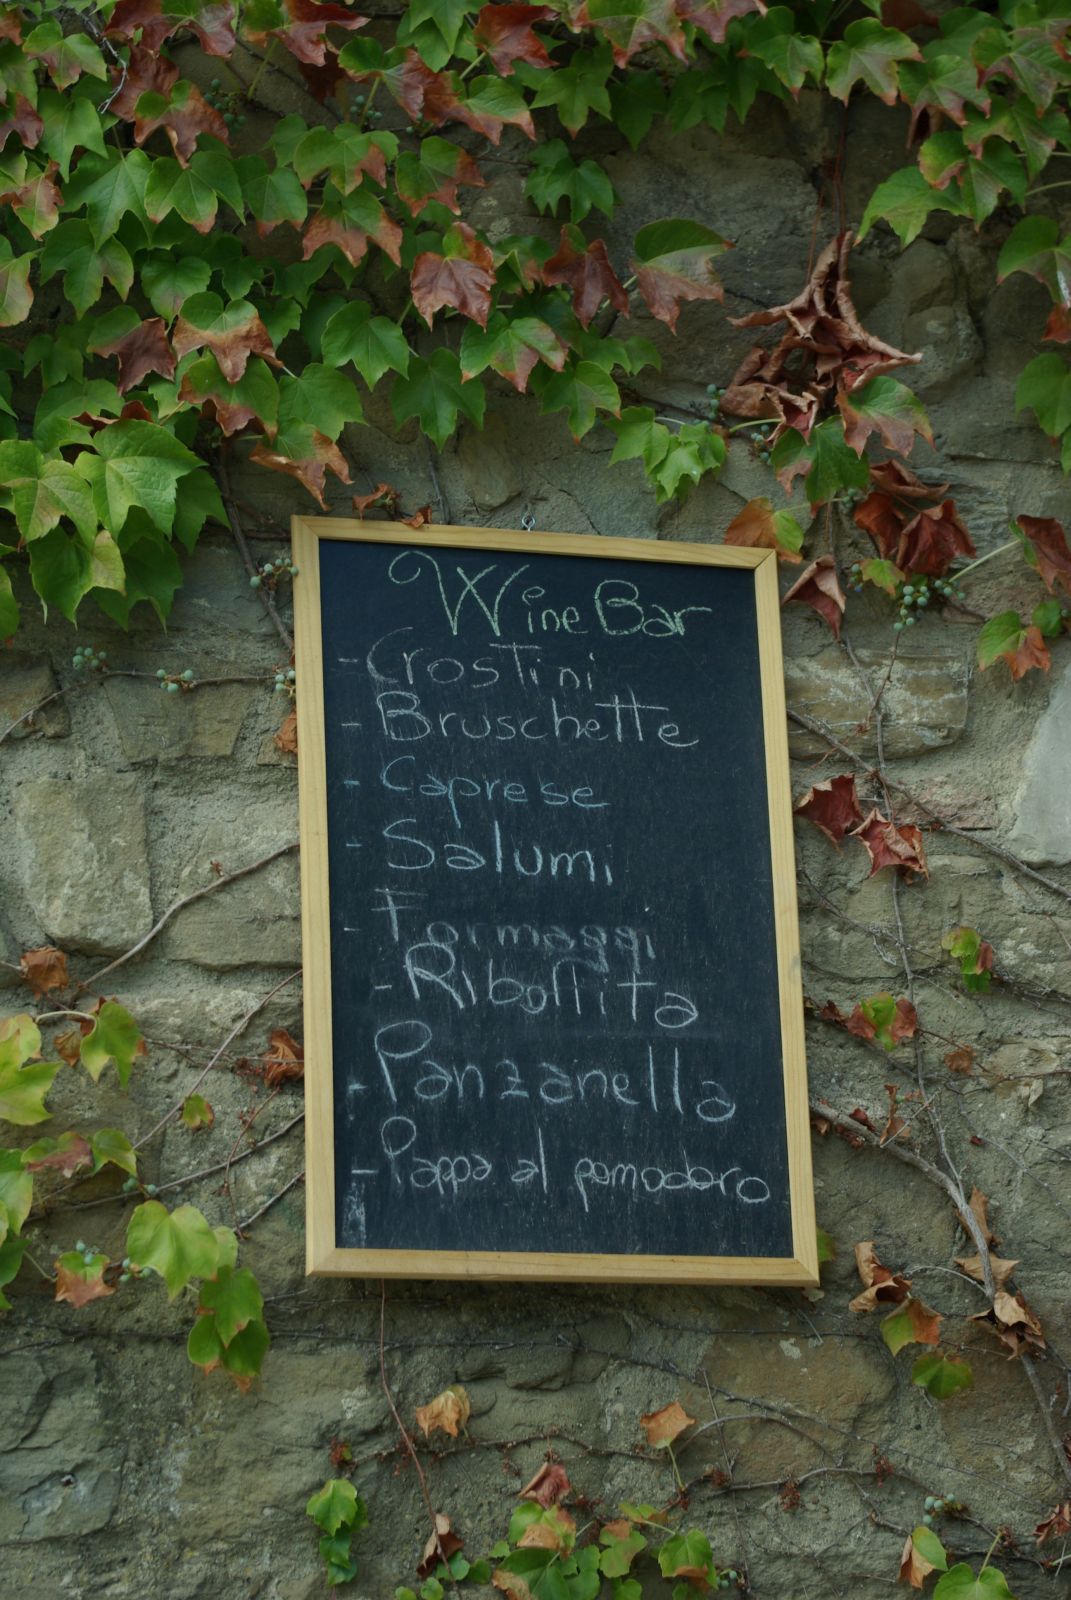 Wine Bar
- Crostini
- Bruschette
- Caprese
- Salumi
- Formaggi
- Ribollita
- Panzanella
- Pappa al pomodoro